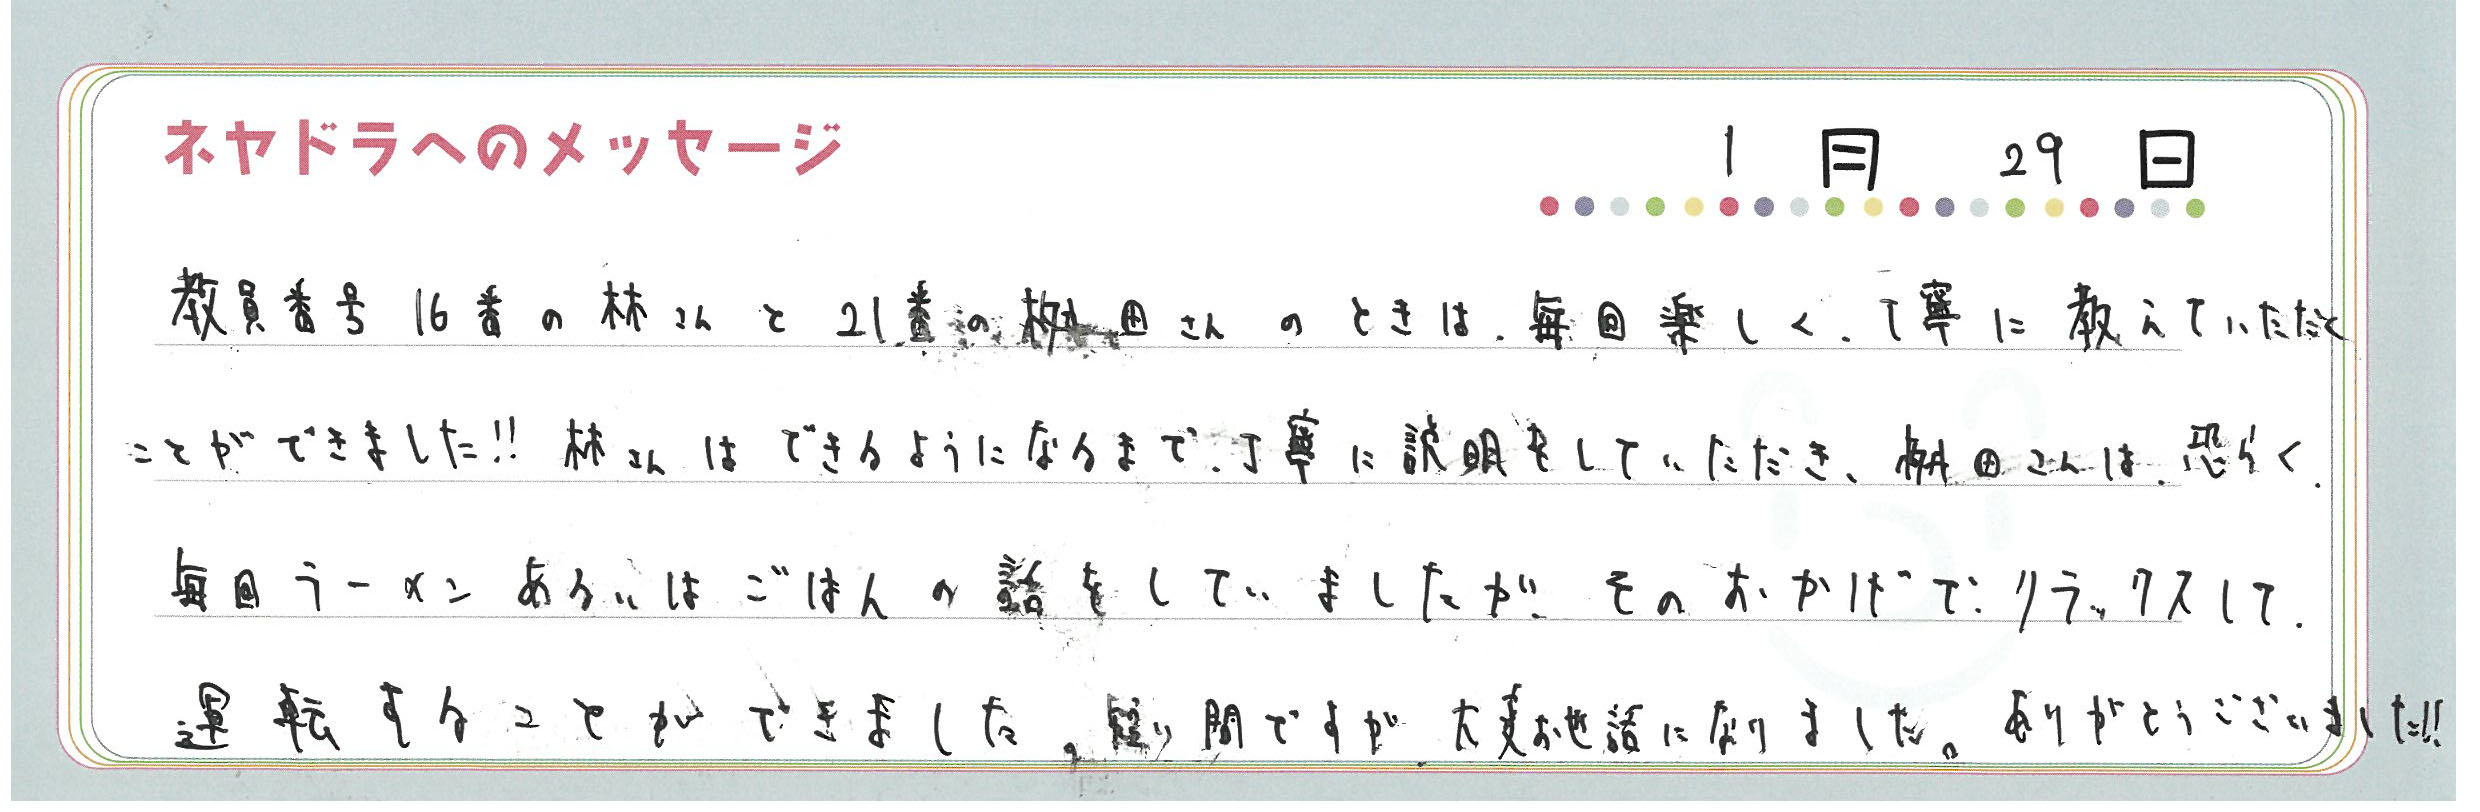 ネヤドラへのメッセージ
1月29日
教員番号16番の林さんと21番の桝田さんのときは、毎回楽しく、丁寧に教えていただく
ことができました!! 林さんはできるようになるまで、丁寧に説明をしていただき、桝田さんは、恐らく、
毎回ラーメンあるいはごはんの話をしていましたが、そのおかげで、リラックスして、
運転することができました。短い間ですが、大変お世話になりました。ありがとうございました!!